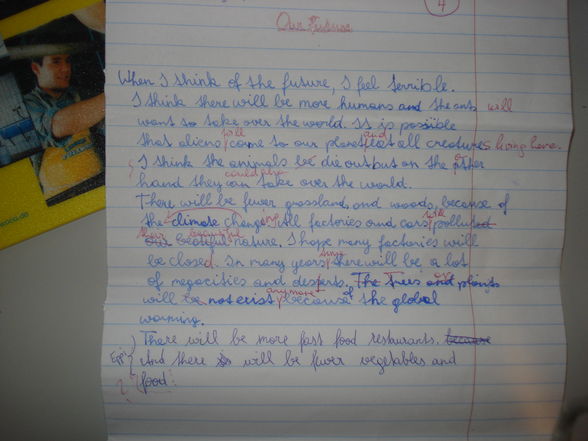 4
Our Future
When I think of the future, I feel terrible.
I think there will be more humans and the ants will
want to take over the world. It is possible
that aliens will come to our planet and eat all creatures living here.
I think the animals die out but on the other
hand they can could also take over the world.
There will be fewer grassland, and woods, because of
the climate change, all factories and cars will polluted
their beautiful nature. I hope many factories will
be closed. In many years time there will be a lot
of megacities and deserts. The trees and plants
will not exist anymore because of the global
warming.
There will be more fast food restaurants. because
And there will be fewer vegetables and
food.